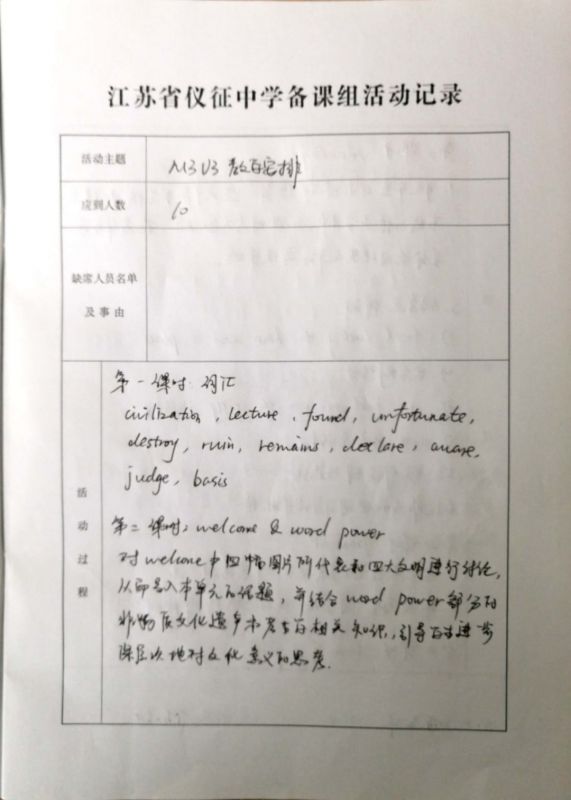 江苏省仪征中学备课组活动记录
活动主题
M3 U3 教学安排
应到人数
10
缺席人员名单
及事由
活动过程
第一课时: 词汇
civilization, lecture, found, unfortunate,
destroy, ruin, remains, declare, aware,
judge, basis
第二课时: welcome & word power
对welcome中四幅图片所代表的四大文明进行讨论,
从而导入本单元的话题, 并结合word power部分的
非物质文化遗产 相关知识, 引导学生进
深层次地对文化意义的思考.